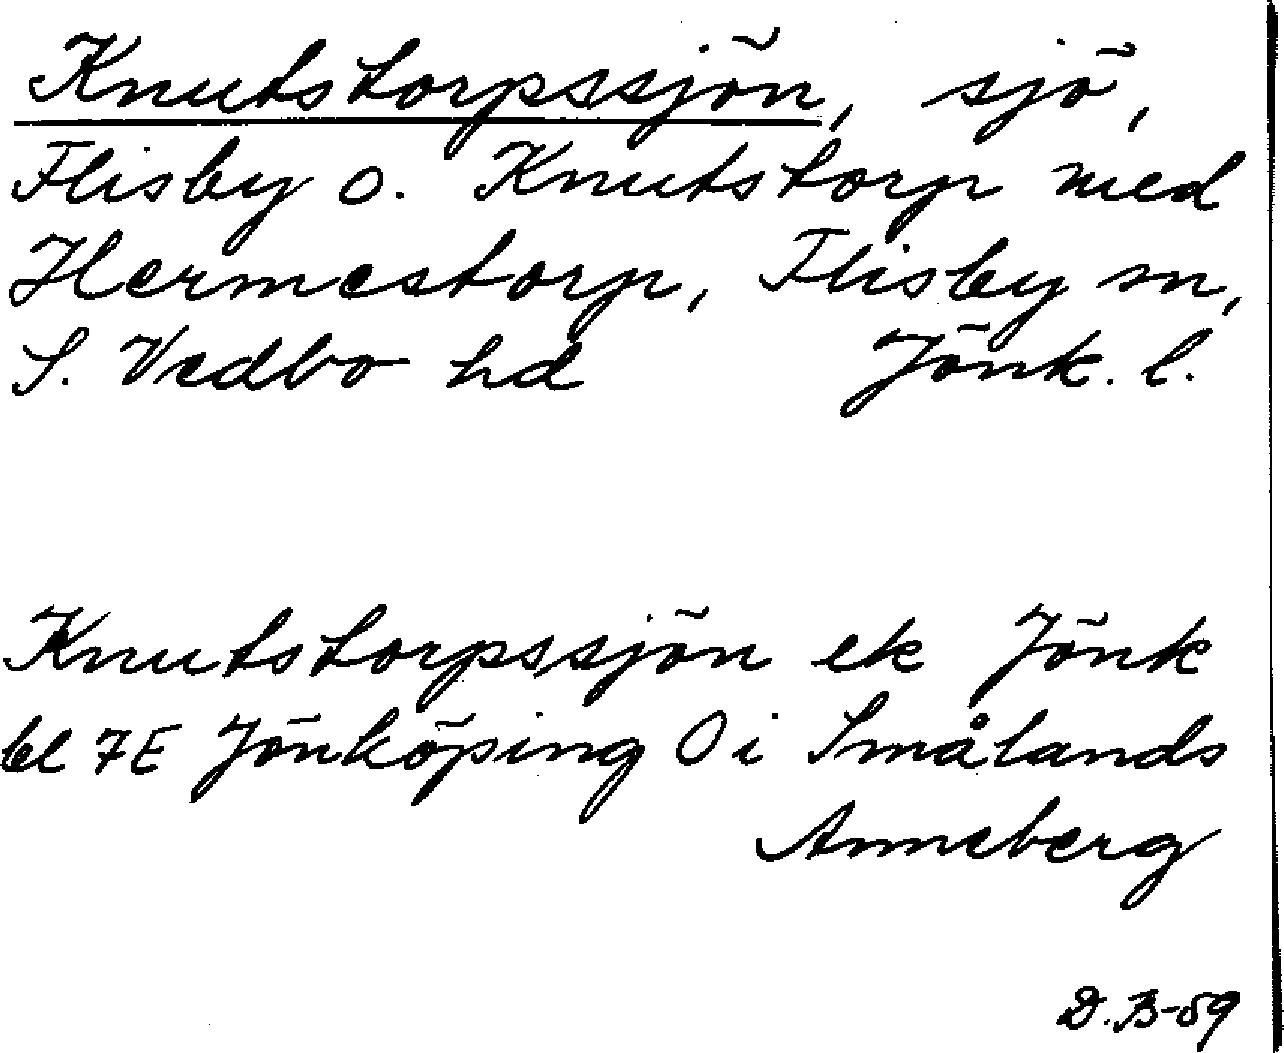 Knutstorpssjön, sjö,
Flisby o. Knutstorp med
Hermestorp, Flisby sn,
S. Vedbo hd Jönk. l.
Knutstorpssjön ek Jönk
bl 7E Jönköping 0 i Smålands
Anneberg
D.B-59